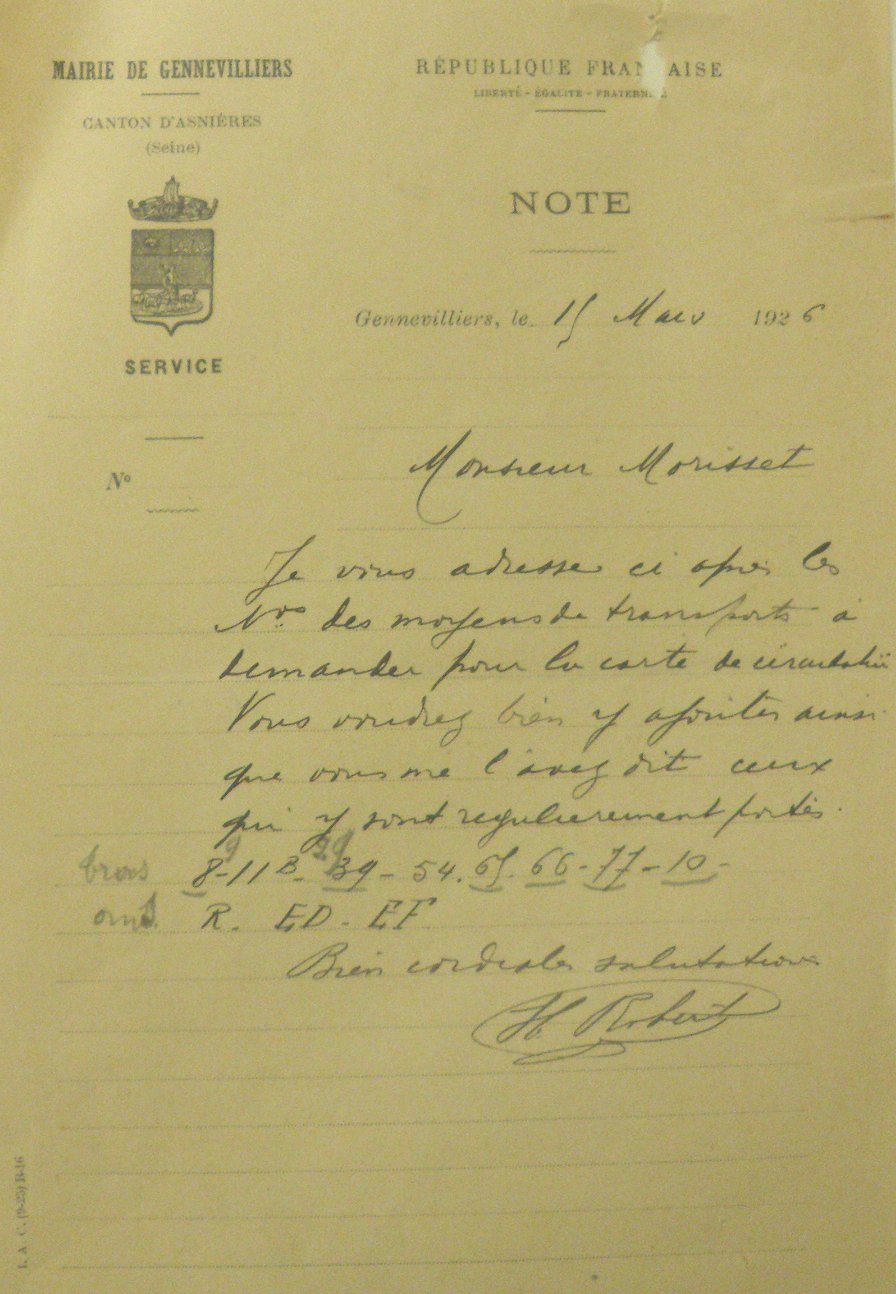 MAIRIE DE GENNEVILLIERS
CANTON D'ASNIÈRES
(Seine)
SERVICE
No
RÉPUBLIQUE FRAN AISE
LIBERTÉ - ÉGALITÉ - FRATERNITÉ
NOTE
Gennevilliers, le 15 Mars 1926
Monsieur Morisset
Je vous adresse ci après les
Nros des moyens de transports à
demander pour la carte de circulation
Vous voudrez bien y ajouter ainsi
que vous me l'avez dit ceux
qui y sont regulierement portés.
9 39
trams 8-11 B - 39 - 54. 65. 66 - 77 - 10 -
R. ED - EF
Bien cordiales salutations
H Robert
I. A. C. (9-25) R-16